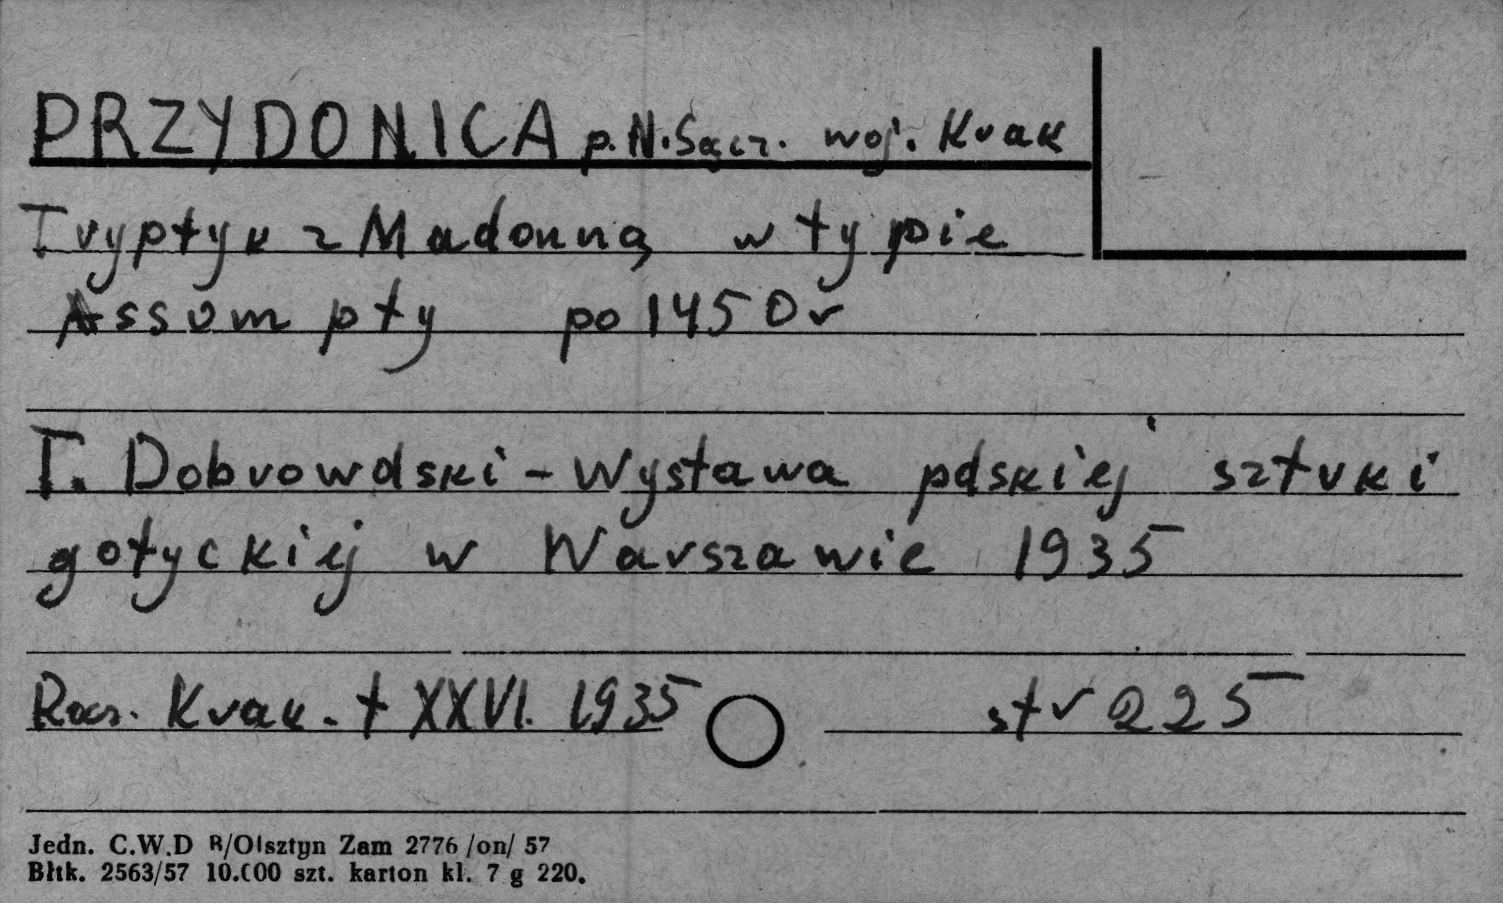 PRZYDONICA p. N. Sącz. woj. Krak
Tryptyk z Madonną w typie
Assumpty po 1450 r
T. Dobrowolski - Wystawa polskiej sztuki
gotyckiej w Warszawie 1935
Rocz. Krak. t XXVI. 1935 str 225
Jedn. C.W.D B/Olsztyn Zam 2776 /on/ 57
Błtk. 2563/57 10.000 szt. karton kl. 7 g 220.